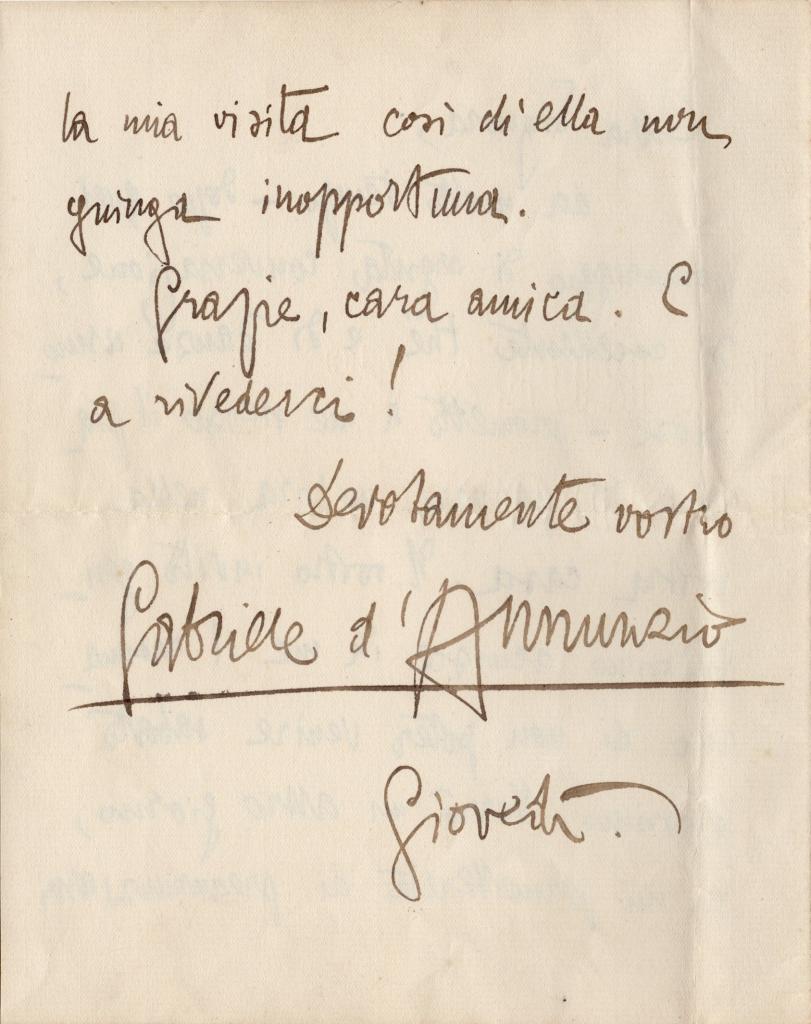 la mia visita così ch'ella non
giunga inopportuna.
Grazie, cara amica. E
a rivederci!
Devotamente vostro
Gabriele d'Annunzio
Giovedì.